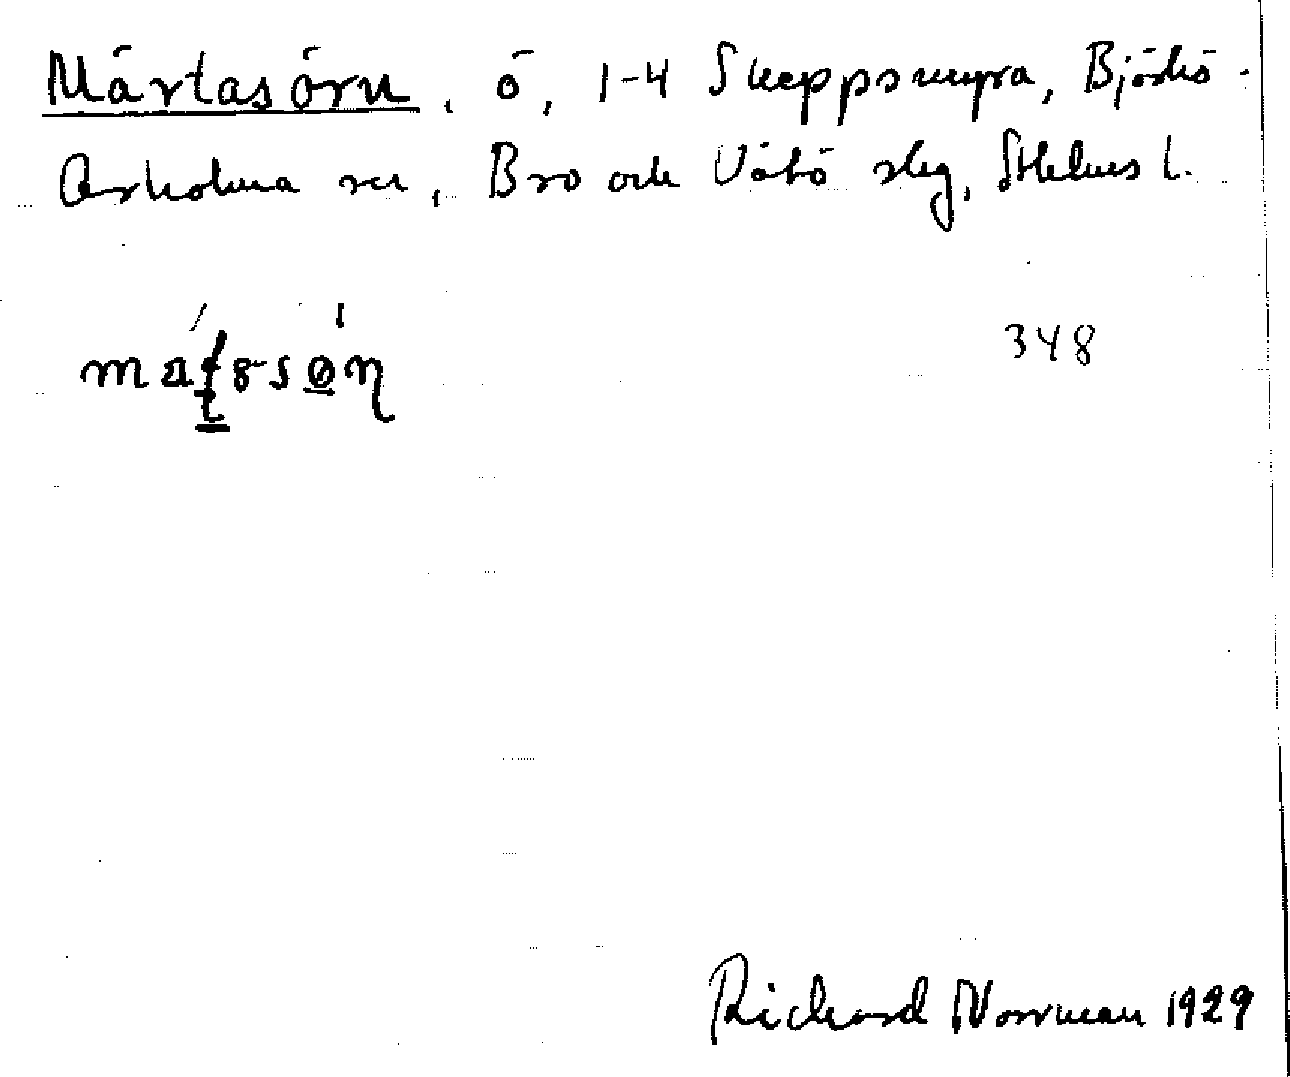 Märtasörn, ö, 1-4 Skeppsmyra, Björkö-
Arholma sn, Bro och Vätö skg, Sthlms l.
348
Richard Norrman 1929